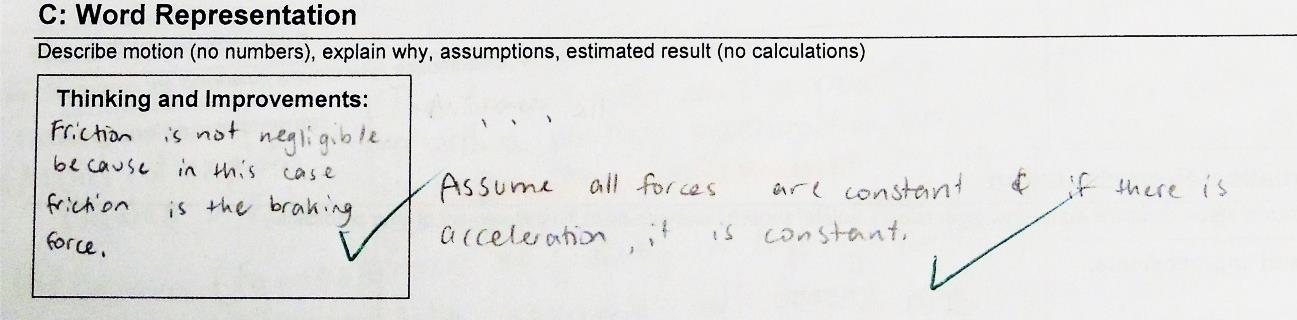 C: Word Representation
Describe motion (no numbers), explain why, assumptions, estimated result (no calculations)
Thinking and Improvements:
Friction is not negligible
because in this case
friction is the braking
force.
...
Assume all forces are constant & if there is
acceleration, it is constant.